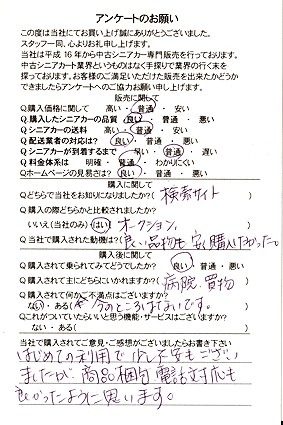 アンケートのお願い
この度は当社にてお買い上げ誠にありがとうございました。
スタッフ一同、心よりお礼申し上げます。
当社は平成16年から中古シニアカー専門販売を行っております。
中古シニアカート業界というものはなく手探りで業界の行く末を
探っております。お客様のご満足いただけた販売を出来たかどうか
できましたらアンケートへのご協力お願い申し上げます。
販売に関して
Q.購入価格に関して 高い・普通・安い
Q.購入したシニアカーの品質 良い・普通・悪い
Q.シニアカーの送料 高い・普通・安い
Q.配送業者の対応は? 良い・普通・悪い
Q.シニアカーが到着するまで 早い・普通・遅い
Q.料金体系は 明確・普通・わかりにくい
Q.ホームページの見易さは? 良い・普通・悪い
購入に関して
Q.どちらで当社をお知りになりましたか?( 検索サイト )
Q.購入の際どちらかと比較されましたか?
いいえ(当社のみ)・はい( オークション )
Q.当社で購入された動機は?( 良い品物を安く購入したかった。
購入後に関して
Q.購入されて乗られてみてどうでしたか? 良い・普通・悪い
Q.購入されて主にどちらにいかれますか?( 病院、買物
Q.購入されて何かご不満点はございますか?
ない・ある( 今のところはないです。
Q.これがついていたらいいと思う機能・サービスはございますか?
ない・ある( )
当社で購入されてご意見・ご感想がございましたらお書き下さい
はじめての利用で少し不安もござい
ましたが、商品、梱包、電話対応も
良かったように思います。